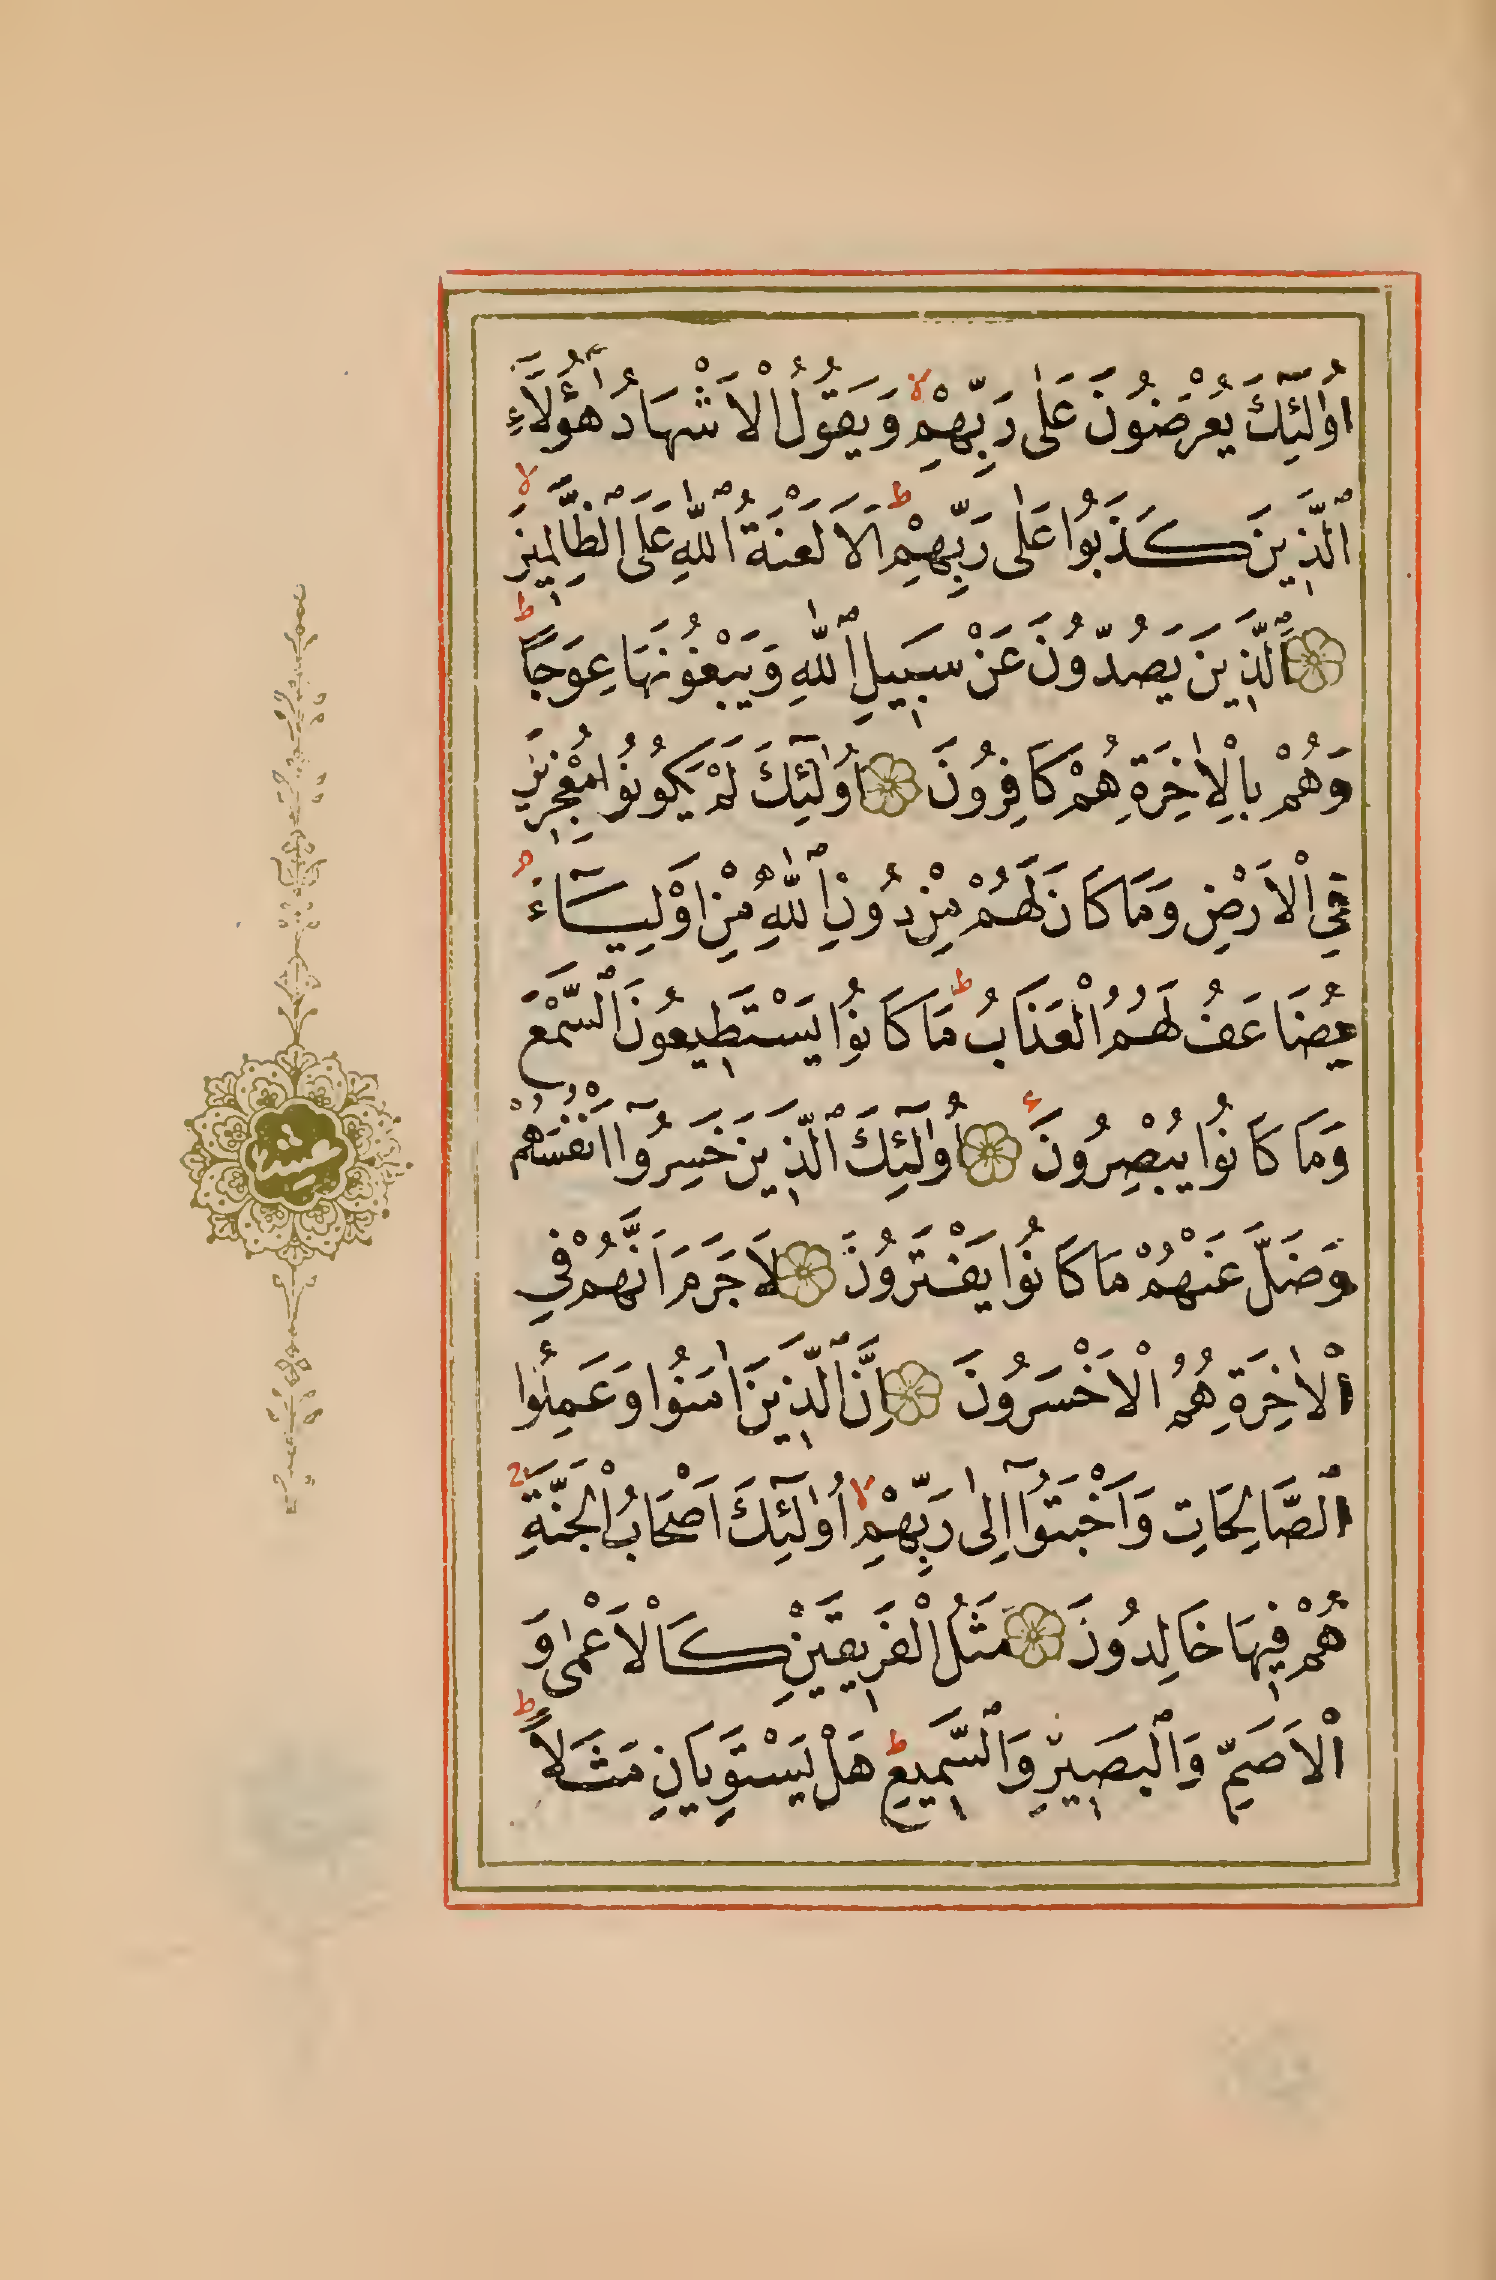 اُولٰٓئِكَ يُعْرَضُونَ عَلٰى رَبِّهِمْ ۙ وَيَقُولُ الْاَشْهَادُ هٰٓؤُلَآءِ
الَّذِينَ كَذَبُوا عَلٰى رَبِّهِمْ ۚ ط اَلَا لَعْنَةُ اللّٰهِ عَلَى الظَّالِمِينَ ۙ
اَلَّذِينَ يَصُدُّونَ عَنْ سَبِيلِ اللّٰهِ وَيَبْغُونَهَا عِوَجًا ط
وَهُمْ بِالْاٰخِرَةِ هُمْ كَافِرُونَ اُولٰٓئِكَ لَمْ يَكُونُوا مُعْجِزِينَ
فِي الْاَرْضِ وَمَا كَانَ لَهُمْ مِنْ دُونِ اللّٰهِ مِنْ اَوْلِيَآءَ ۘ
يُضَاعَفُ لَهُمُ الْعَذَابُ ط مَا كَانُوا يَسْتَطِيعُونَ السَّمْعَ
وَمَا كَانُوا يُبْصِرُونَ اُولٰٓئِكَ الَّذِينَ خَسِرُوٓا اَنْفُسَهُمْ
وَضَلَّ عَنْهُمْ مَا كَانُوا يَفْتَرُونَ لَا جَرَمَ اَنَّهُمْ فِي
الْاٰخِرَةِ هُمُ الْاَخْسَرُونَ اِنَّ الَّذِينَ اٰمَنُوا وَعَمِلُوا
الصَّالِحَاتِ وَاَخْبَتُوٓا اِلٰى رَبِّهِمْ ۙ اُولٰٓئِكَ اَصْحَابُ الْجَنَّةِ
هُمْ فِيهَا خَالِدُونَ مَثَلُ الْفَرِيقَيْنِ كَالْاَعْمٰى وَ
الْاَصَمِّ وَالْبَصِيرِ وَالسَّمِيعِ ط هَلْ يَسْتَوِيَانِ مَثَلًا ط